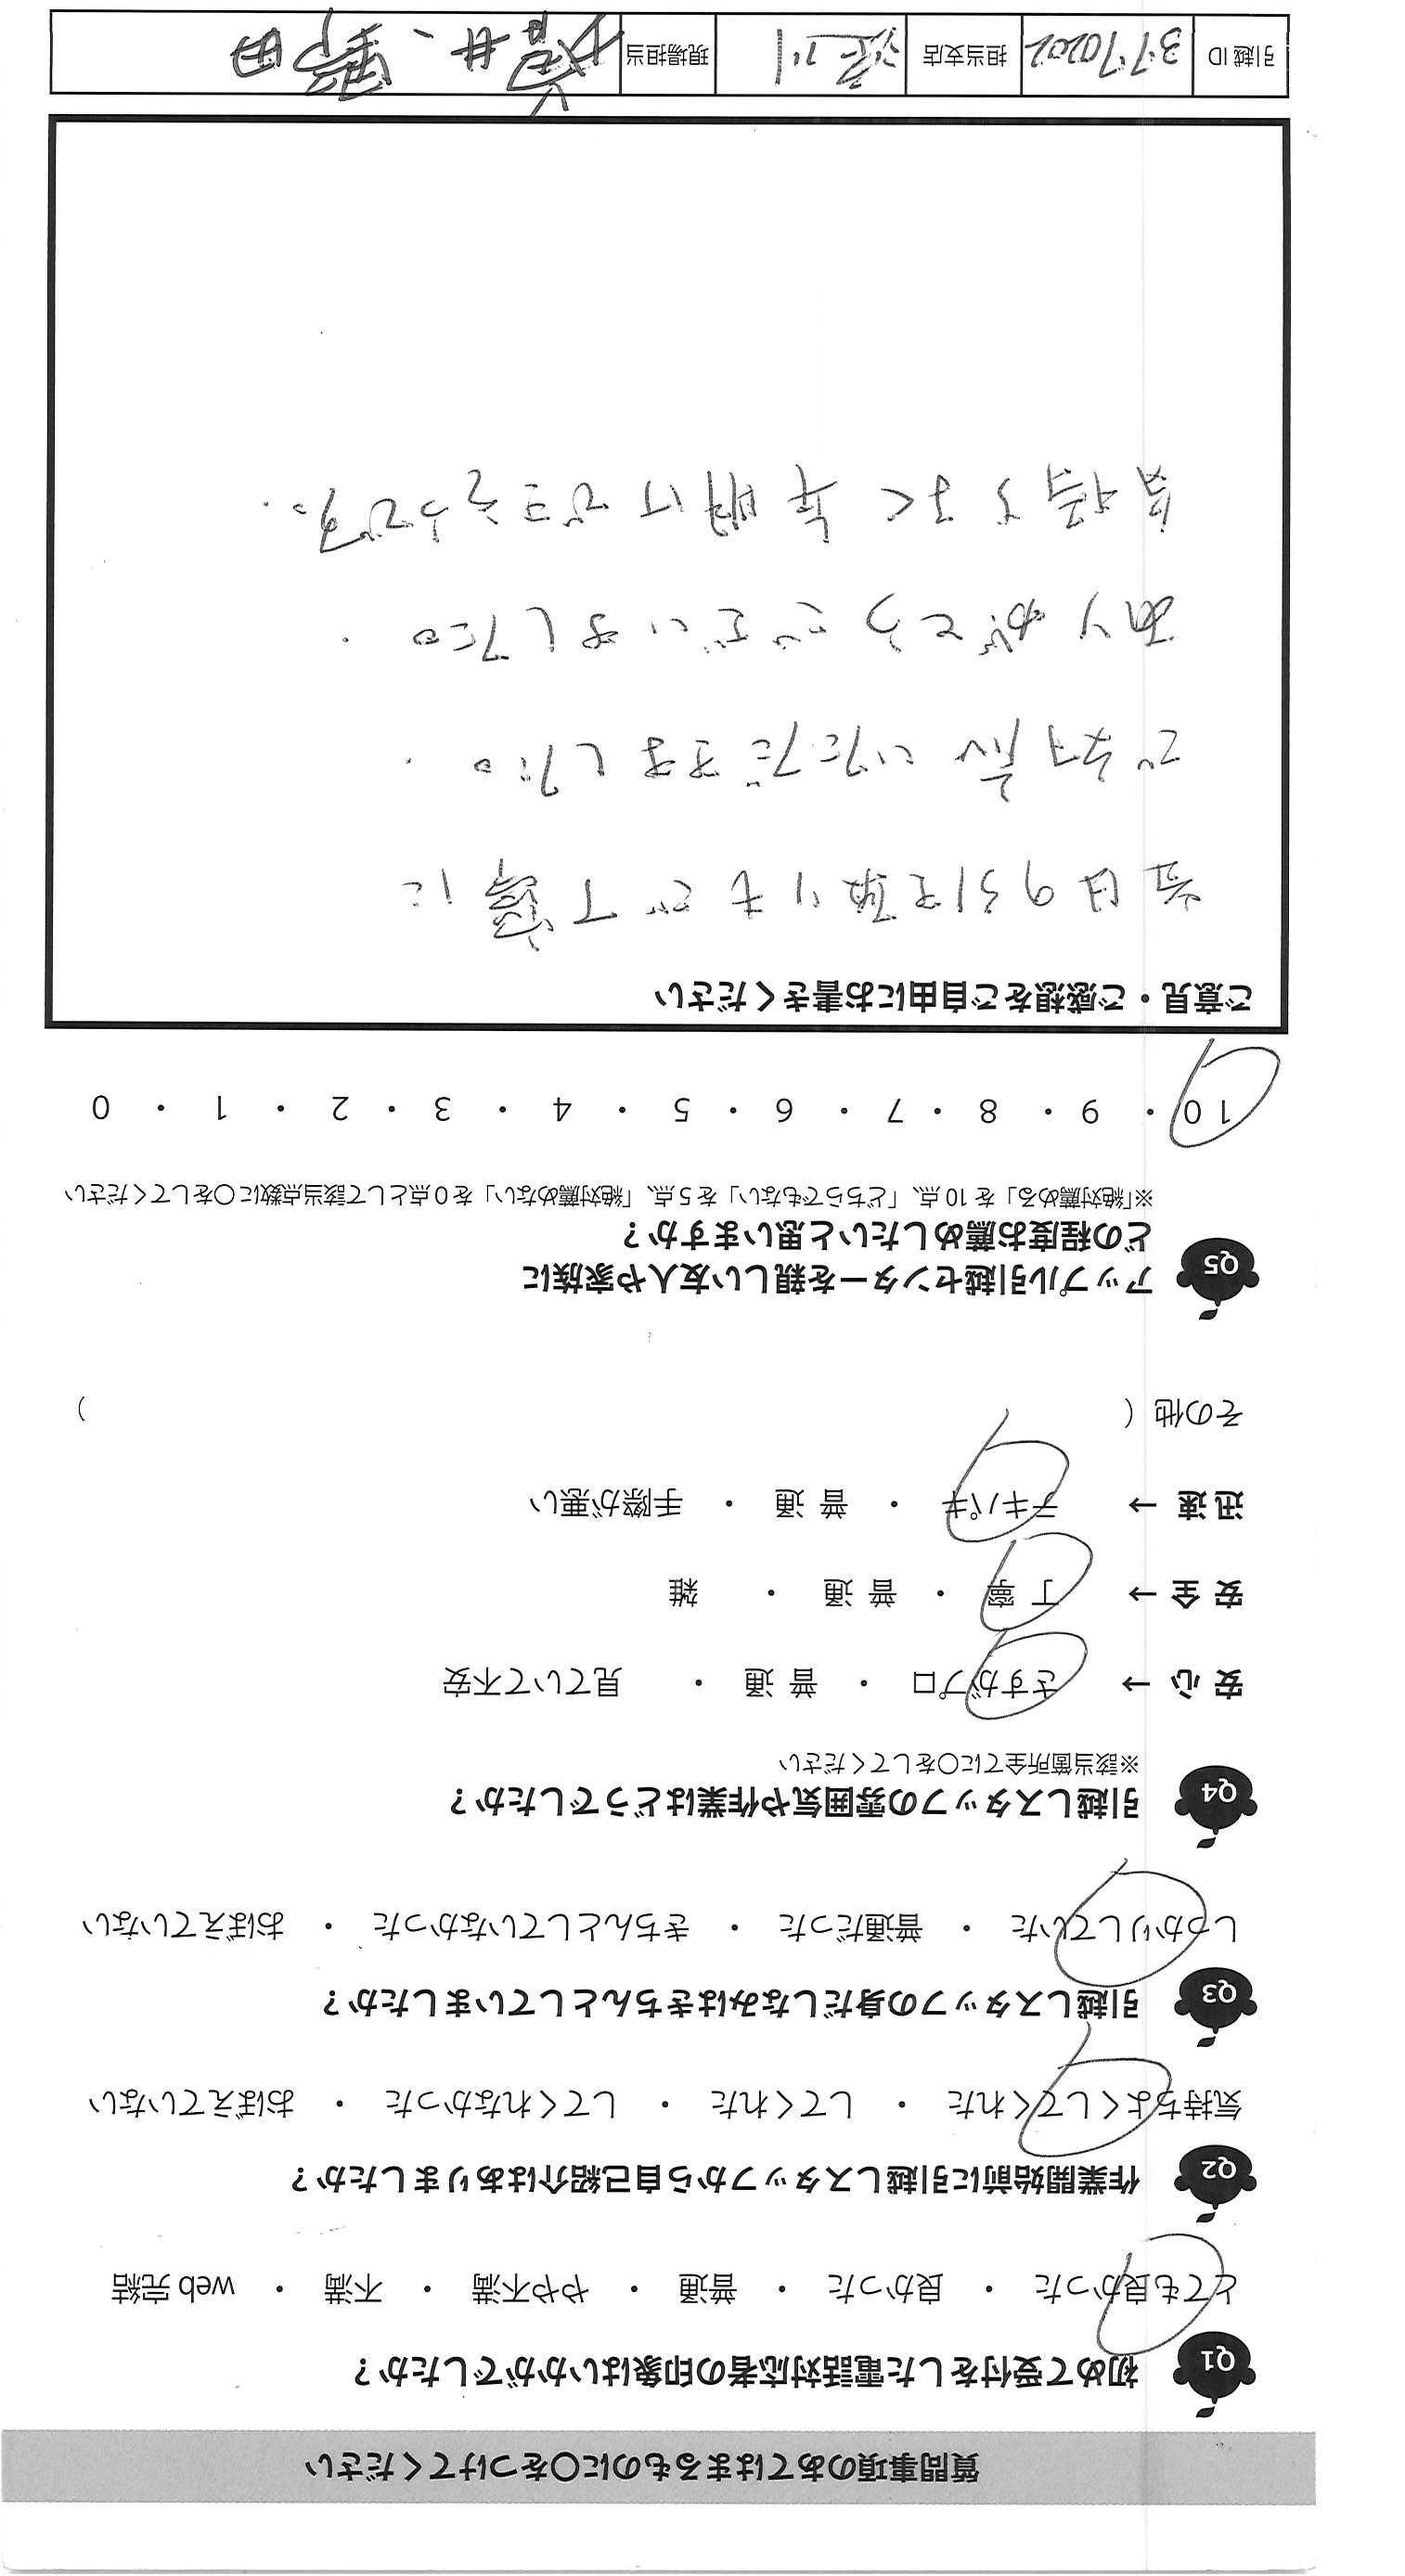 質問事項のあてはまるものに〇をつけてください
Q1 初めて受付をした電話対応者の印象はいかがでしたか？
とても良かった ・ 良かった ・ 普通 ・ やや不満 ・ 不満 ・ web 完結
Q2 作業開始前に引越しスタッフから自己紹介はありましたか？
気持ちよくしてくれた ・ してくれた ・ してくれなかった ・ おぼえていない
Q3 引越しスタッフの身だしなみはきちんとしていましたか？
しっかりしていた ・ 普通だった ・ きちんとしていなかった ・ おぼえていない
Q4 引越しスタッフの雰囲気や作業はどうでしたか？
※該当箇所全てに〇をしてください
安 心 → さすがプロ ・ 普 通 ・ 見ていて不安
安 全 → 丁 寧 ・ 普 通 ・ 雑
迅 速 → テキパキ ・ 普 通 ・ 手際が悪い
その他（ ）
Q5 アップル引越センターを親しい友人や家族に
どの程度お薦めしたいと思いますか？
※「絶対薦める」を 10 点、「どちらでもない」を 5 点、「絶対薦めない」を 0 点として該当点数に〇をしてください
10 ・ 9 ・ 8 ・ 7 ・ 6 ・ 5 ・ 4 ・ 3 ・ 2 ・ 1 ・ 0
ご意見・ご感想をご自由にお書きください
当日の引き取りもご丁寧に
ご対応いただきました。
ありがとうございました。
気持ちよく年明けできそうです。
引越 ID 3770202 担当支店 現場担当